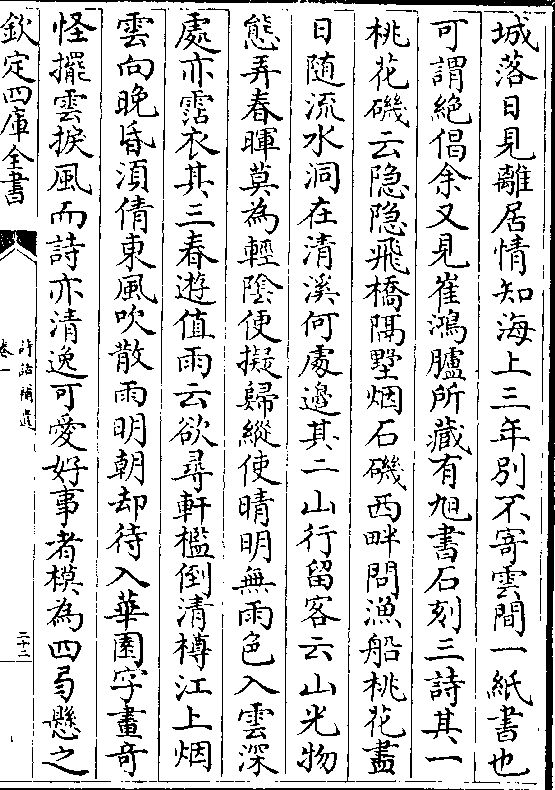 城落日見離居情知海上三年別不寄雲間一紙書也
可謂絶倡余又見崔鴻臚所藏有旭書石刻三詩其一
桃花磯云隐隐飛橋隔墅烟石磯西畔問漁船桃花盡
日随流水洞在清溪何處邉其二山行留客云山光物
態弄春暉莫為輕隂便擬歸縱使晴明無雨色入雲深
處亦霑衣其三春遊值雨云欲尋軒檻倒清樽江上烟
雲向晚昏湏倩東風吹散雨明朝却待入華園字畫竒
怪擺雲捩風而詩亦清逸可愛好事者模為四軸懸之
欽定四庫全書
詩話補遺
卷一
二十二